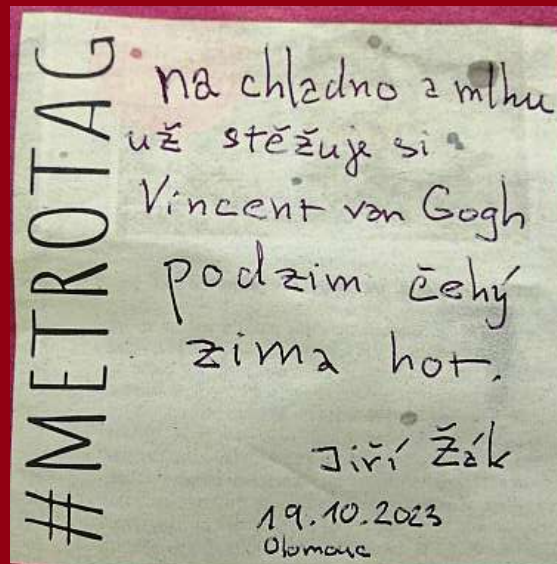 #METROTAG
na chladno a mlhu
už stěžuje si
Vincent van Gogh
podzim čehý
zima hot.
Jiří Žák
19.10.2023
Olomouc